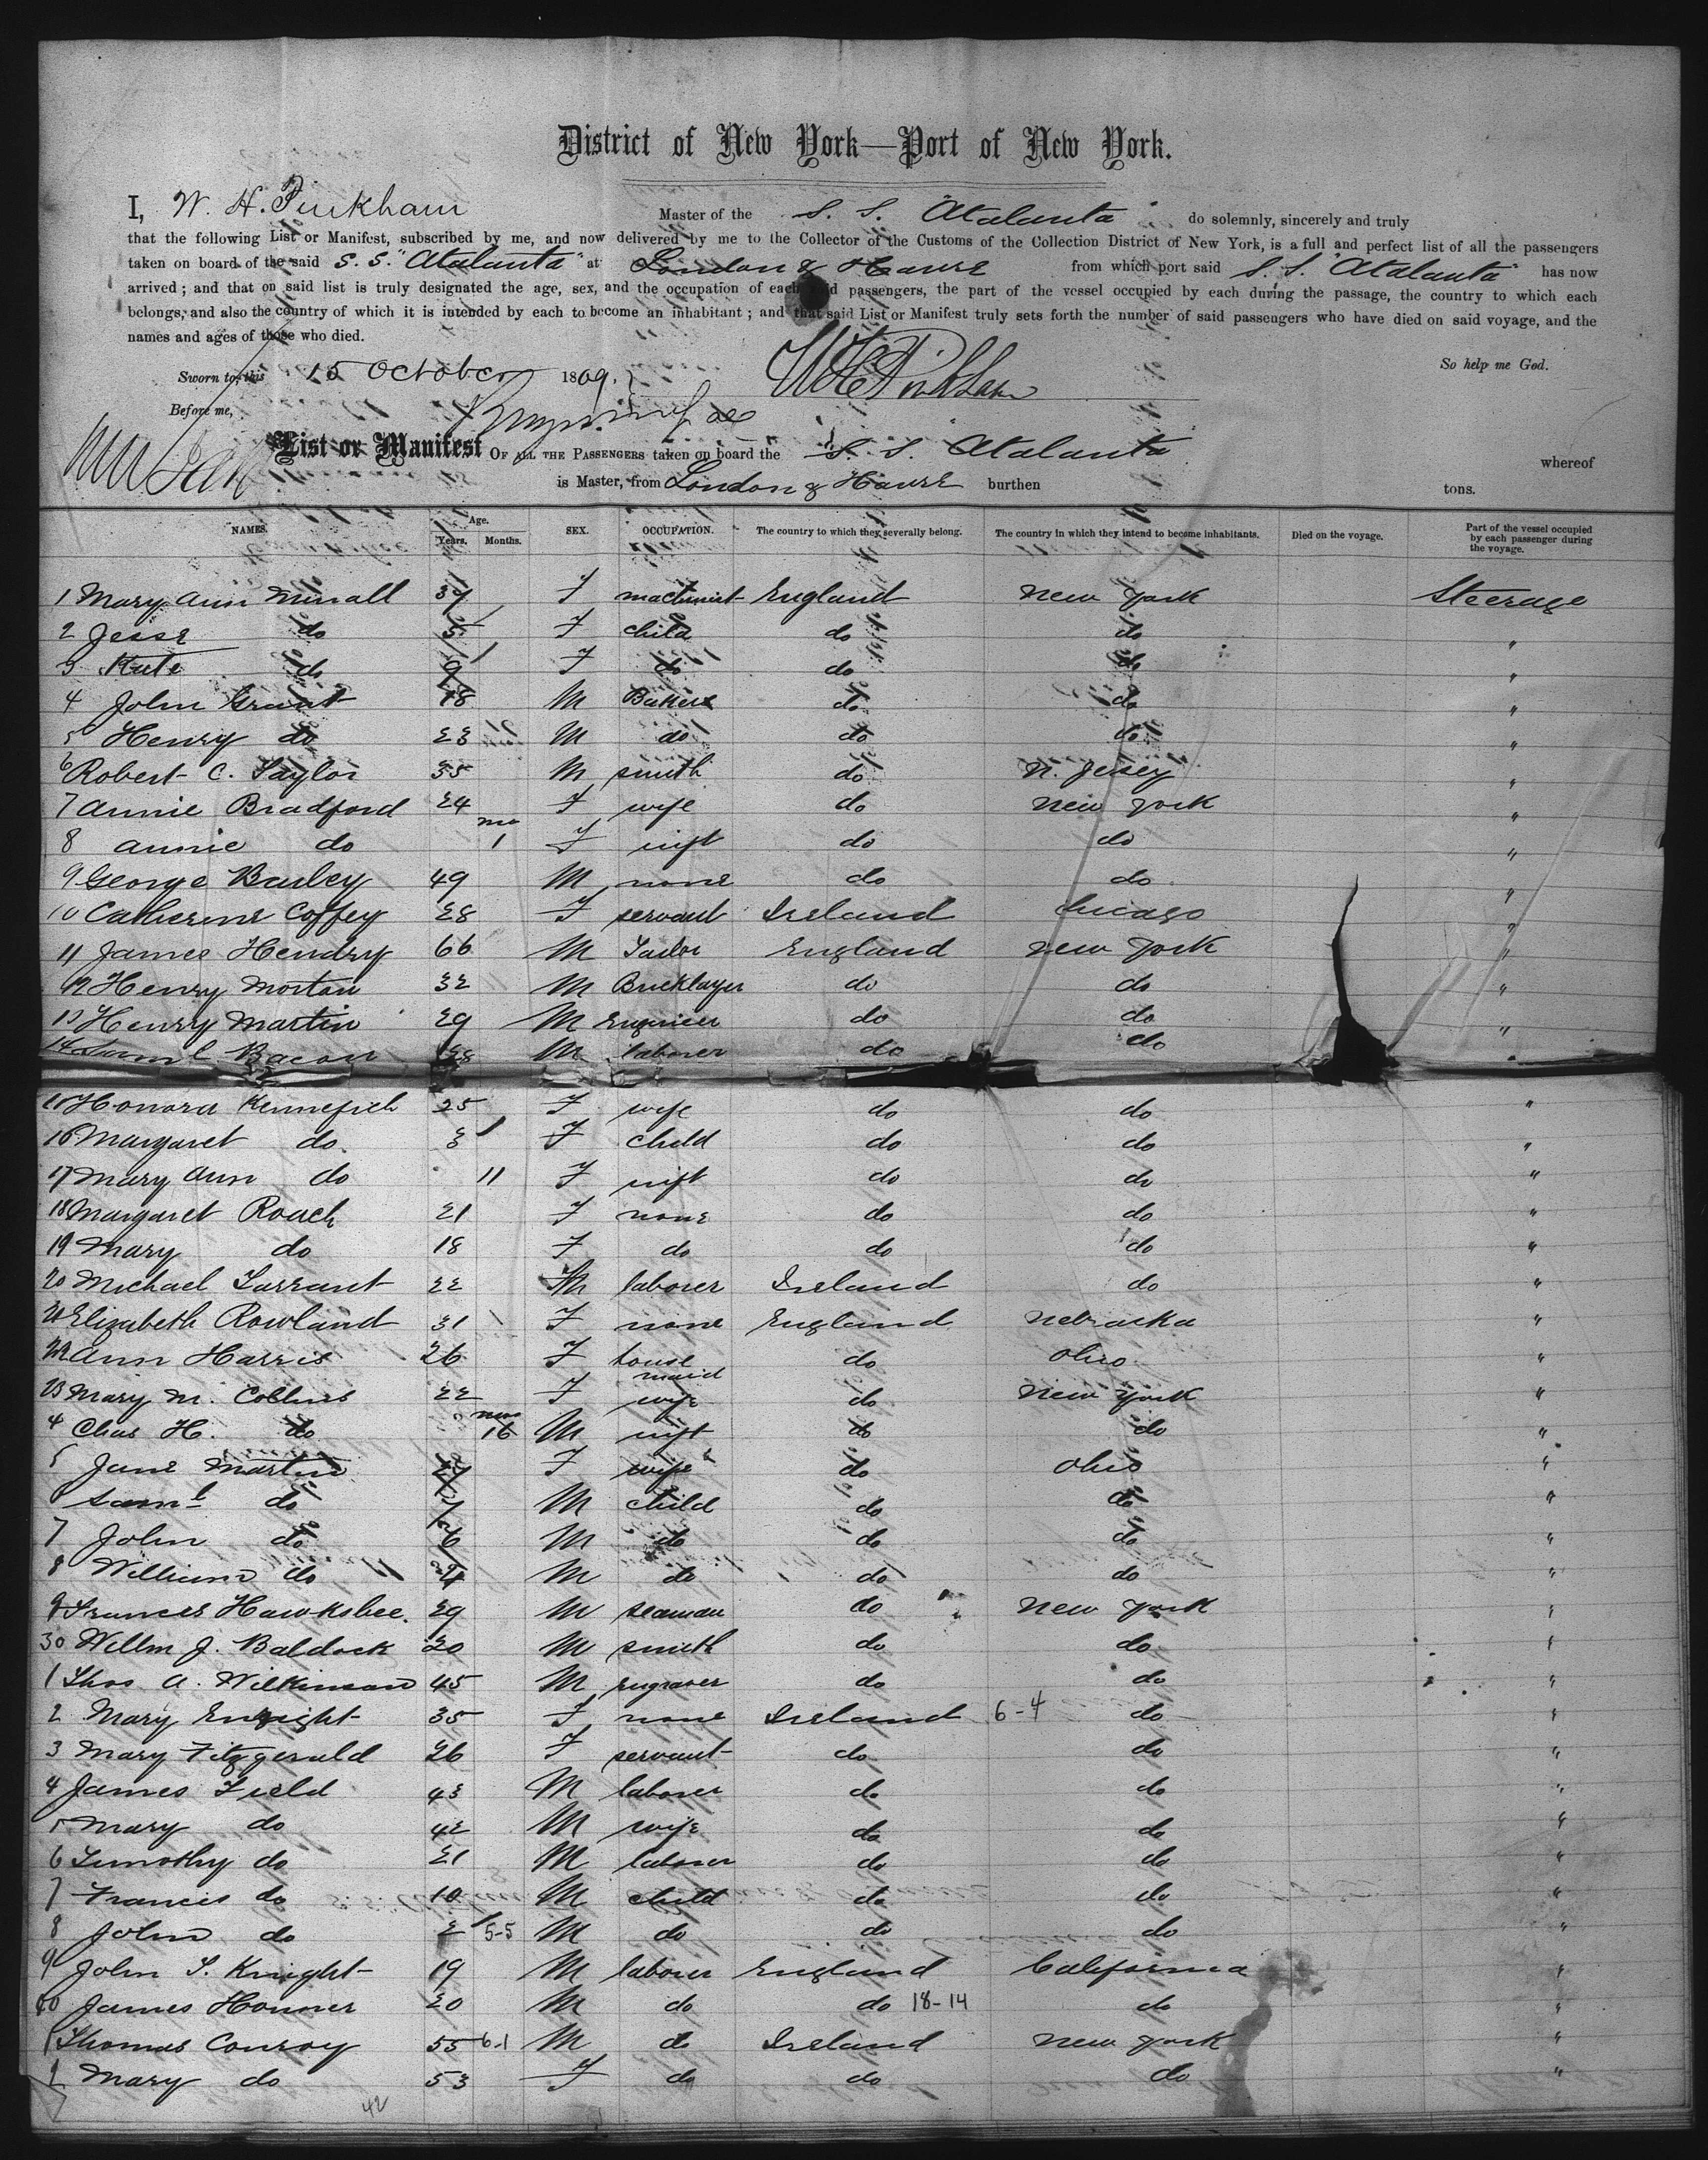 District of New York—Port of New York.
I, W. H. Pinkham Master of the S. S. "Atalanta" do solemnly, sincerely and truly
that the following List or Manifest, subscribed by me, and now delivered by me to the Collector of the Customs of the Collection District of New York, is a full and perfect list of all the passengers
taken on board of the said S. S. "Atalanta" at London & Havre from which port said S. S. "Atalanta" has now
arrived; and that on said list is truly designated the age, sex, and the occupation of each said passengers, the part of the vessel occupied by each during the passage, the country to which each
belongs, and also the country of which it is intended by each to become an inhabitant; and that said List or Manifest truly sets forth the number of said passengers who have died on said voyage, and the
names and ages of those who died.
So help me God.
Sworn to this 15 October 1869. W H Pinkham
Before me,
List or Manifest OF ALL THE PASSENGERS taken on board the S. S. Atalanta whereof
is Master, from London & Havre burthen tons.
NAMES. Age. Years. Months. SEX. OCCUPATION. The country to which they severally belong. The country in which they intend to become inhabitants. Died on the voyage. Part of the vessel occupied by each passenger during the voyage.
1 Mary Ann 37 F machinist England New York Steerage
2 Jesse do 5 F child do do "
3 Kate do 9 F do do do "
4 John Grant 18 M Baker do do "
5 Henry do 23 M do do do "
6 Robert C. Taylor 35 M smith do N. Jersey "
7 Annie Bradford 24 F wife do New York "
8 Annie do mo 1 F inft do do "
9 George Barley 49 M none do do "
10 Catherine Coffey 28 F servant Ireland Chicago "
11 James Hendry 66 M Tailor England New York "
12 Henry Morton 32 M Bricklayer do do "
13 Henry Martin 29 M Engineer do do "
14 Saml Bacon 28 M laborer do do "
15 Honora Kennefick 25 F wife do do "
16 Margaret do 3 F child do do "
17 Mary Ann do 11 F inft do do "
18 Margaret Roach 21 F none do do "
19 Mary do 18 F do do do "
20 Michael Tarrant 22 M laborer Ireland do "
21 Elizabeth Rowland 31 F none England Nebraska "
22 Ann Harris 26 F house maid do Ohio "
23 Mary M. Collins 22 F wife do New York "
4 Chas H. do mos 16 M inft do do "
5 Jane Martin 27 F wife do Ohio "
Saml do 7 M child do do "
7 John do 6 M do do do "
8 William do 4 M do do do "
9 Frances Hawksbee. 29 M seaman do New York "
30 Willm J. Baldock 20 M smith do do "
1 Thos A. Wilkinson 45 M engraver do do "
2 Mary Enright 35 F none Ireland 6-4 do "
3 Mary Fitzgerald 26 F servant do do "
4 James Field 43 M laborer do do "
5 Mary do 42 M wife do do "
6 Timothy do 21 M laborer do do "
7 Francis do 10 M child do do "
8 John do 2 5-5 M do do do "
9 John T. Knight 19 M laborer England California "
40 James Honner 20 M do do 18-14 do "
1 Thomas Conroy 55 6-1 M do Ireland New York "
2 Mary do 53 F do do do "
42